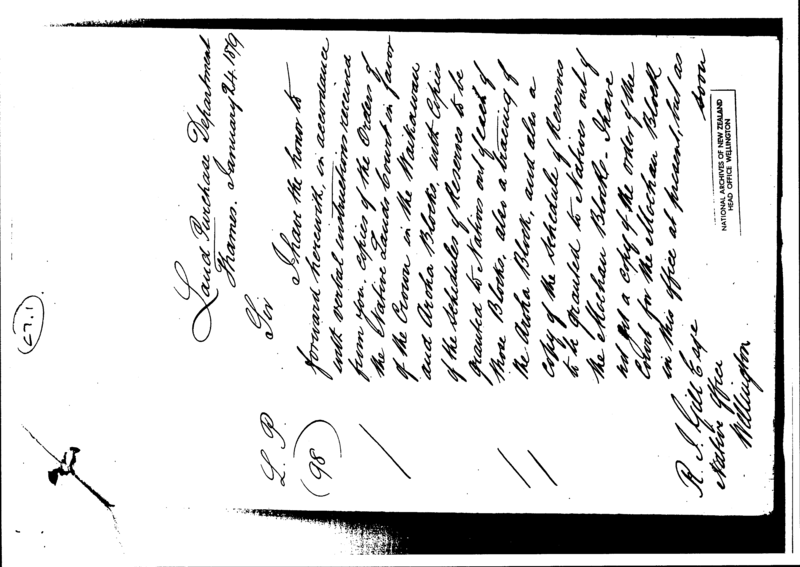 (27.1)
Land Purchase Department
Thames. January 24. 1879
L. P.
(98)
Sir
I have the honor to
forward herewith, in accordance
with verbal instructions received
from you, copies of the Orders of
the Native Lands Court in favor
of the Crown in the Waikawau
and Aroha Blocks, with Copies
of the Schedules of Reserves to be
granted to Natives out of each of
those Blocks, also a tracing of
the Aroha Block, and also a
copy of the Schedule of Reserves
to be granted to Natives out of
the Moehau Block - I have
not got a copy of the order of the
Court for the Moehau Block
in this office at present, but as
soon
R. J. Gill Esqe
Native Office
Wellington
NATIONAL ARCHIVES OF NEW ZEALAND
HEAD OFFICE WELLINGTON